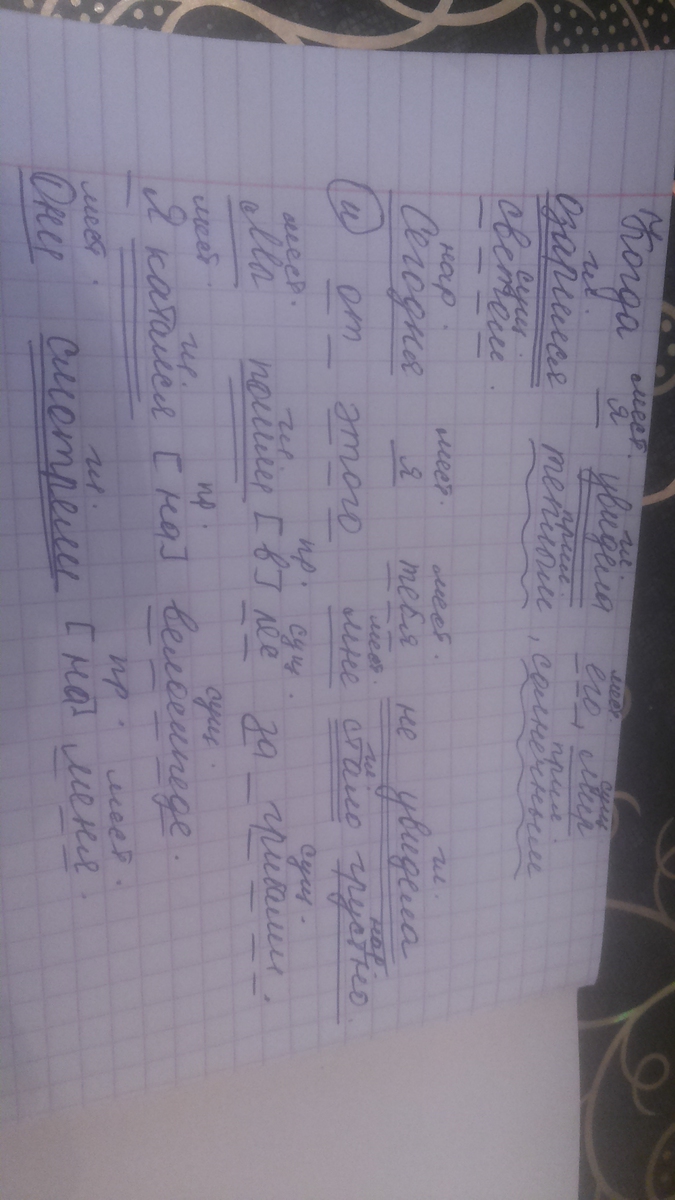 мест. гл. мест. сущ.
Когда я увидела его, мир
гл. прил. прил.
озарился теплым, солнечным
сущ.
светом.
нар. мест. мест. гл.
Сегодня я тебя не увидела
мест. гл. нар.
и от этого мне стало грустно.
мест. гл. пр. сущ. сущ.
Мы пошли [в] лес за грибами.
мест. гл. пр. сущ.
Я катался [на] велосипеде.
мест. гл. пр. мест.
Они смотрели [на] меня.